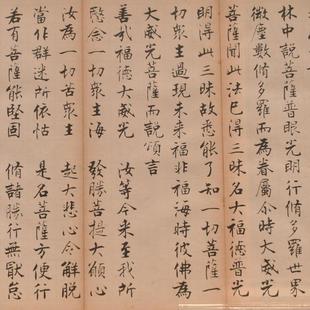 林中說菩薩普眼光明行脩多羅世界
微塵數脩多羅而為眷屬尒時大威光
菩薩聞此法已得三昧名大福德普光
明得此三昧故悉能了知一切菩薩一
切衆生過現未來福非福海時彼佛為
大威光菩薩而說頌言
善哉福德大威光　汝等今來至我所
愍念一切衆生海　發勝菩提大願心
汝為一切苦衆生　起大悲心令解脫
當作群迷所依怙　是名菩薩方便行
若有菩薩能堅固　脩諸勝行無猒怠